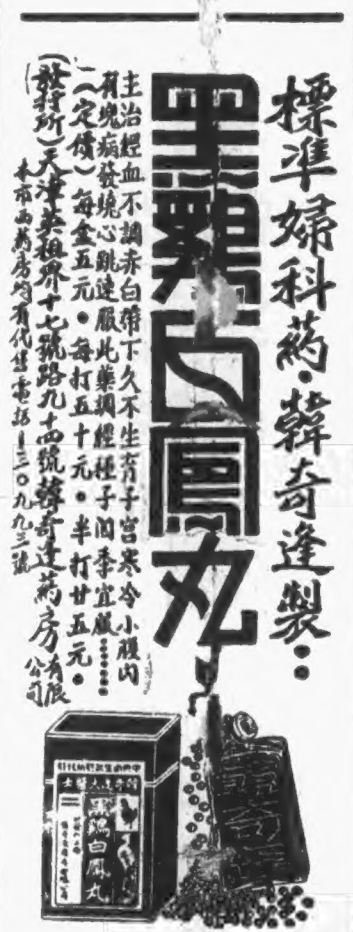 標準婦科药·韓奇逢製··
黑鷄白鳳丸
主治經血不調赤白帶下久不生育子宮寒冷小腹內
有塊病發燒心跳速服此藥調經種子闔季宜服······
(定價)每盒五元·每打五十元·半打廿五元·
(發行所)天津英租界十七號路九十四號韓奇逢药房有限公司
本市西药房均有代售電話-三〇九九三號
黑鷄白鳳丸
韓奇逢